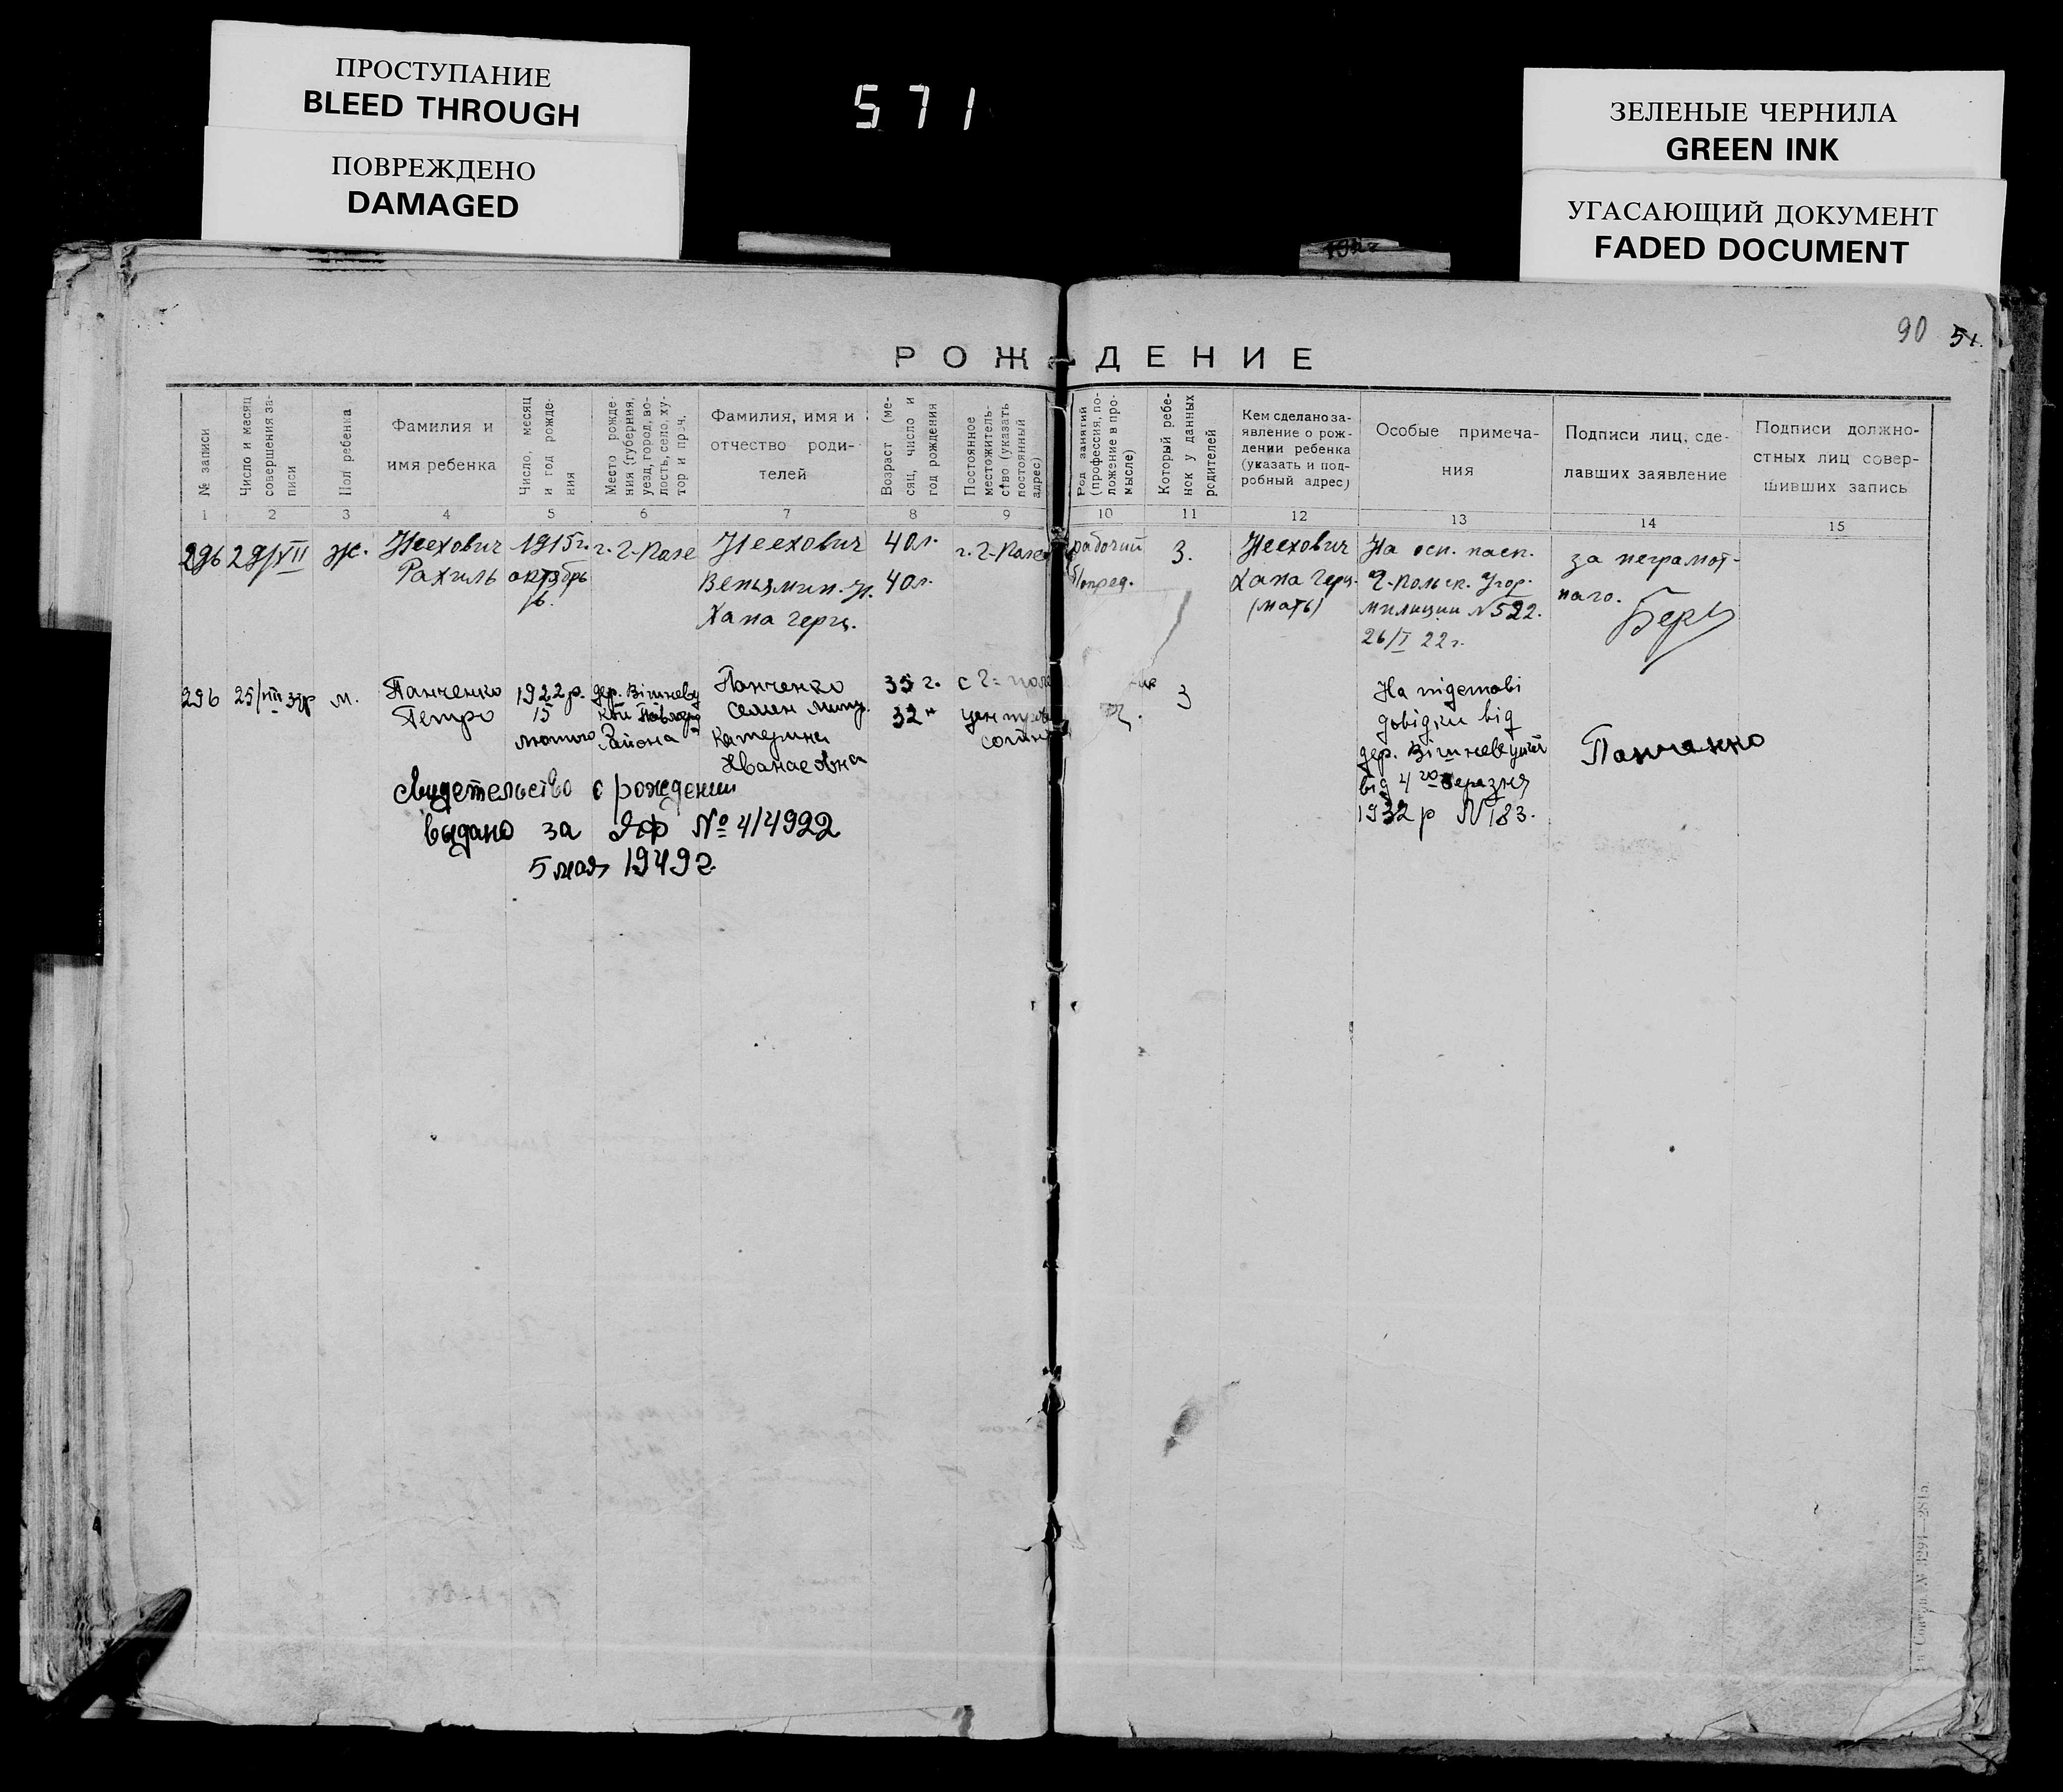 ПРОСТУПАНИЕ
BLEED THROUGH
ПОВРЕЖДЕНО
DAMAGED
571
ЗЕЛЕНЫЕ ЧЕРНИЛА
GREEN INK
УГАСАЮЩИЙ ДОКУМЕНТ
FADED DOCUMENT
90
51.
РОЖДЕНИЕ
№ записи
Число и месяц
совершения за-
писи
Пол ребенка
Фамилия и
имя ребенка
Число, месяц
и год рожде-
ния
Место рожде-
ния (губерния,
уезд, город, во-
лость, село, ху-
тор и проч.
Фамилия, имя и
отчество роди-
телей
Возраст (ме-
сяц, число и
год рождения
Постоянное
местожитель-
ство (указать
постоянный
адрес)
Род занятий
(профессия, по-
ложение в про-
мысле)
Который ребе-
нок у данных
родителей
Кем сделано за-
явление о рож-
дении ребенка
(указать и под-
робный адрес)
Особые примеча-
ния
Подписи лиц, сде-
лавших заявление
Подписи должно-
стных лиц совер-
шивших запись
1 2 3 4 5 6 7 8 9 10 11 12 13 14 15
296
29/XII
ж.
Неехович
Рахиль
1915 г.
октябрь
г. Г-Поле
Неехович
Веньямин.
Хана Герц.
40 л.
40 л.
г. Г-Поле
рабочий
3.
Неехович
Хана Герц.
(мать)
На осн. пасп.
Г-Польск. Угор.
милиции N522.
26/I 22 г.
за неграмот-
наго.
296
25/VIII 32р
м.
Панченко
Петро
1922 р.
15
лютого
дер.
Района
Панченко
Семен
Катерина
Ивановна
35 г.
32 "
с Г-поле
3
На підставі
довідки від
дер.
від 4го березня
1932 р N183.
Панченко
Свидетельство о рождении
выдано за ЯФ № 414922
5 мая 1949г